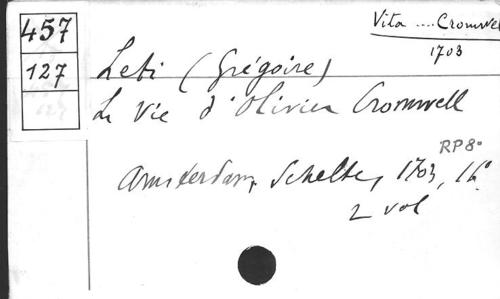 457
127
Vita .... Cromwel
1703
Leti (Grégoire)
La Vie d'Olivier Cromwell
RP 8°
Amsterdam, Schelte, 1703, 16°
2 vol